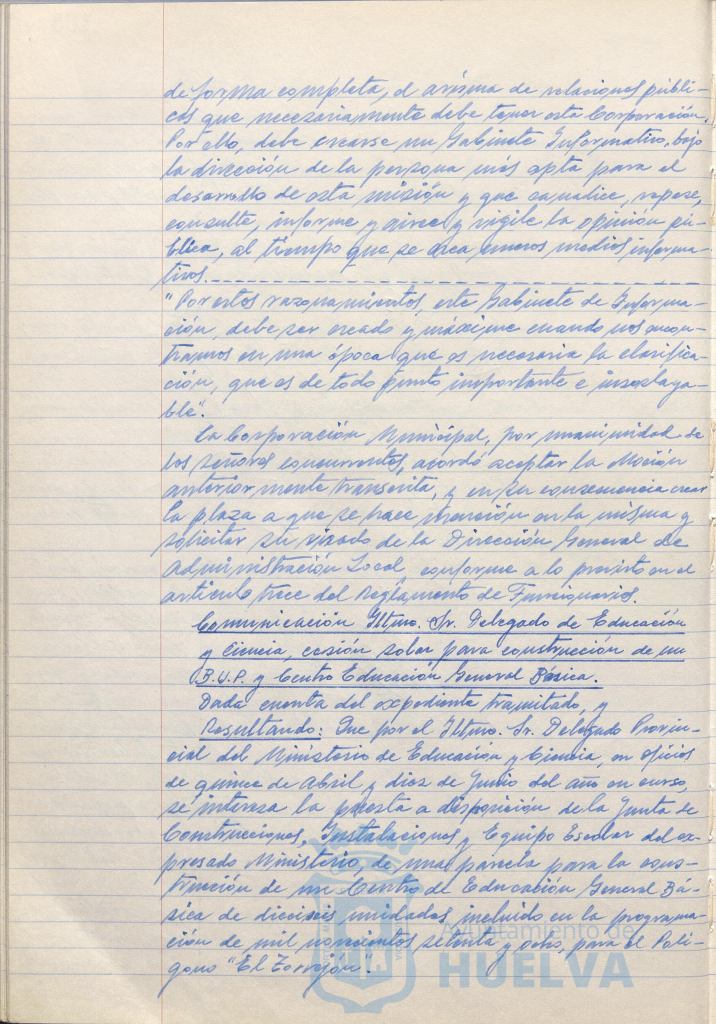 de forma completa, el arisma de relaciones públi-
cas que necesariamente debe tener esta Corporación.
Por ello, debe crearse un Gabinete Informativo, bajo
la dirección de la persona más apta para el
desarrollo de esta misión y que canalice, repese,
consulte, informe y airee y vigile la opinión pú-
blica, al tiempo que se crea nuevos medios informa-
tivos.
"Por estos razonamientos, este Gabinete de Informa-
ción, debe ser creado y máxime cuando nos encon-
tramos en una época que es necesaria la clarifica-
ción, que es de todo punto importante e insoslaya-
ble".
La Corporación Municipal, por unanimidad de
los señores concurrentes, acordó aceptar la Moción
anteriormente transcrita, y en su consecuencia crear
la plaza a que se hace mención en la misma y
solicitar su visado de la Dirección General de
Administración Local, conforme a lo previsto en el
articulo trece del Reglamento de Funcionarios.
Comunicación Iltmo. Sr. Delegado de Educación
y Ciencia, cesión solar para construcción de un
B.U.P. y Centro Educación General Básica.
Dada cuenta del expediente tramitado, y
Resultando: Que por el Iltmo. Sr. Delegado Provin-
cial del Ministerio de Educación y Ciencia, en oficios
de quince de Abril y diez de Junio del año en curso,
se interesa la puesta a disposición de la Junta de
Construcciones, Instalaciones y Equipo Escolar del ex-
presado Ministerio, de una parcela para la cons-
trucción de un Centro de Educación General Bá-
sica de dieciseis unidades, incluido en la programa-
ción de mil novecientos setenta y ocho, para el Polí-
gono "El Torrejón".
Ayuntamiento de
HUELVA